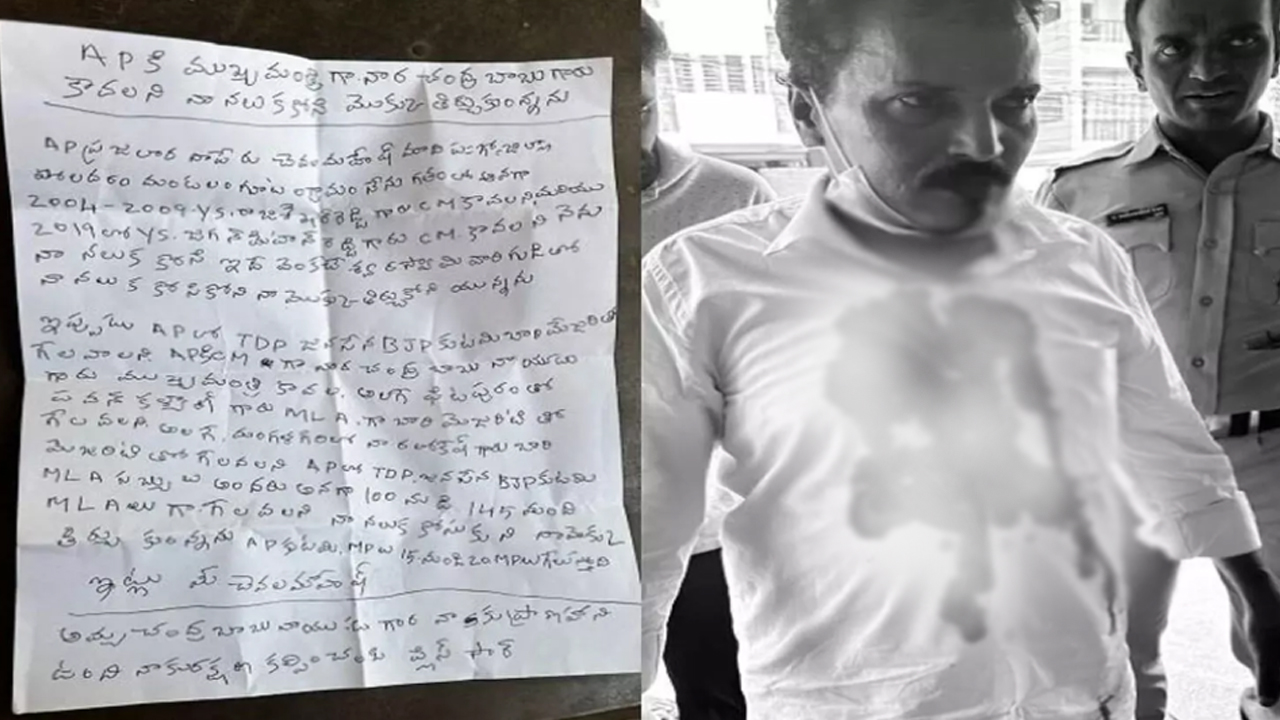 AP కి ముఖ్యమంత్రి గా నార చంద్రబాబు గారు
కావలని నా నలుకకోసి మొక్కు తీర్చుకుంన్నను
AP ప్రజలార నాపేరు చెవల మహేష్
మండలం గ్రామం నేను గతంలో అనగా
2004-2009 YS. రాజశేఖర్ రెడ్డి గారు CM కావలని మరియు
2019 లో YS. జగన్ మోహన్ రెడ్డి గారు CM. కావలని నేను
నా నలుక కోసి ఇదే వెంకటేశ్వరస్వామి వారి గుడిలో
నా నలుక కోసికోని నా మొక్కు తీర్చుకోని యున్నను
ఇప్పుడు AP లో TDP జనసేన BJP కుటమి భారి మేజరితో
గేలవాలని APకి CM గా నార చంద్ర బాబు నాయుడు
గారు ముఖ్యమంత్రి కావల. అలాగే పిఠపురంలో
పవన్ కళ్యాణ్ గారు MLA. గా భారి మెజరిటి తో
గేలవలని అలగే. మంగళగిరిలో నారలోకేష్ గారు భారి
మెజరిటి తో గేలవలని APలో TDP. జనసేన BJP కుటమి
MLA అందరు అనగా 100 నుడి 145 మంది
MLA లు గా గేలవలని నా నలుక కోసుకుని నామొక్కు
తీర్చుకుంన్నను AP కుటమి. MPలు 15 నుండి 20 MPలు
ఇట్లు మీ చెవలమహేష్
అమ్మ చంద్రబాబు నాయుడు గారి నాకు ప్రాణహాని
ఉంది నాకు రక్షణ కల్పించండి ప్లీస్ సార్